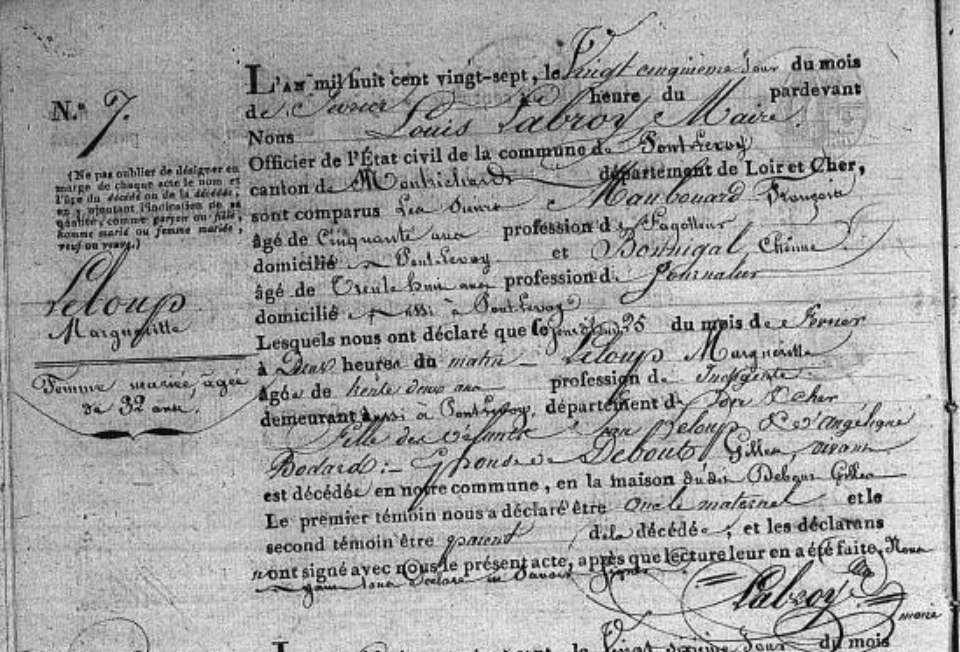 N.º 7.
(Ne pas oublier de désigner en
marge de chaque acte le nom et
l'âge du décédé ou de la décédée,
en y ajoutant l'indication de sa
qualité, comme garçon ou fille,
homme marié ou femme mariée,
veuf ou veuve.)
Leloup
Margueritte
Femme mariée, agée
de 32 ans.
L'AN mil huit cent vingt-sept, le Vingt cinquieme Jour du mois
de fevrier heure du pardevant
Nous Louis Labroy Maire
Officier de l'État civil de la commune de Pontlevoy
canton de Montrichard département de Loir et Cher,
sont comparus Maubouard François
âgé de Cinquante ans profession de
domicilié a Pont-Levoy et Bonnigal Etienne
âgé de Trente huit ans profession de Journalier
domicilié aussi à Pontlevoy
Lesquels nous ont déclaré que le 25 du mois de fevrier
à Deux heures du matin Leloup Margueritte
âgée de trente deux ans profession d'Indigente
demeurant aussi à Pontlevoy, département de Loir & Cher
Fille des défunts Jean Leloup & d'Angélique
Bodard :- Epouse de Debout Gilles, vivant
est décédée en notre commune, en la maison du dit Debout Gilles
Le premier témoin nous a déclaré être Oncle maternel et le
second témoin être parent de la décédée, et les déclarans
n'ont signé avec nous le présent acte, après que lecture leur en a été faite. Nous
ayant tous déclaré ne Savoir Signer
Labroy
maire
L' Vingt Jour du mois